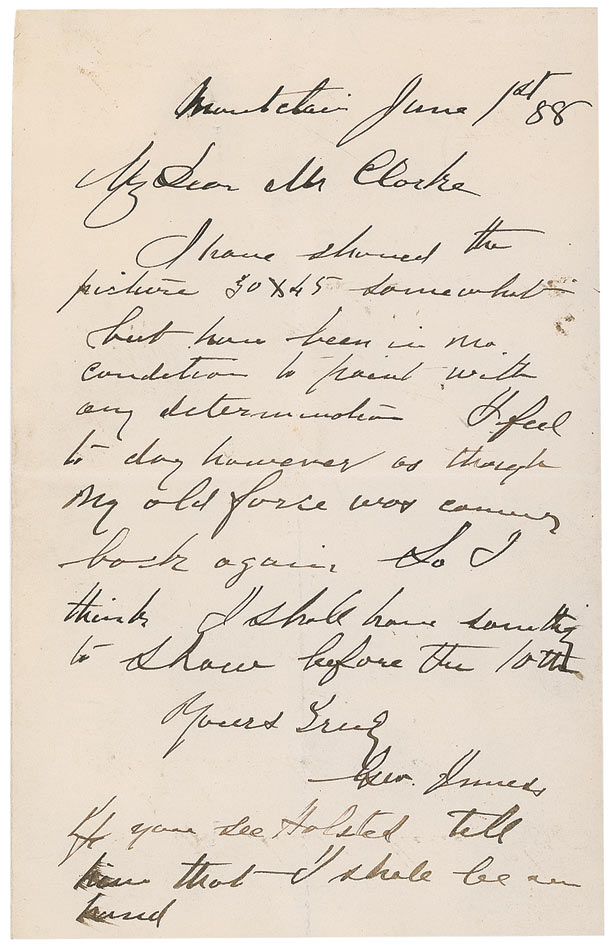 Montclair June 1st 88
My Dear Mr Clarke
I have shoved the
picture 30X45 somewhat
but have been in no
condition to paint with
any determination I feel
to day however as though
my old force was coming
back again So I
think I shall have something
to show before the 10th
Yours Truly
Geo. Inness
If you see Halsted tell
him that I shall be on
hand